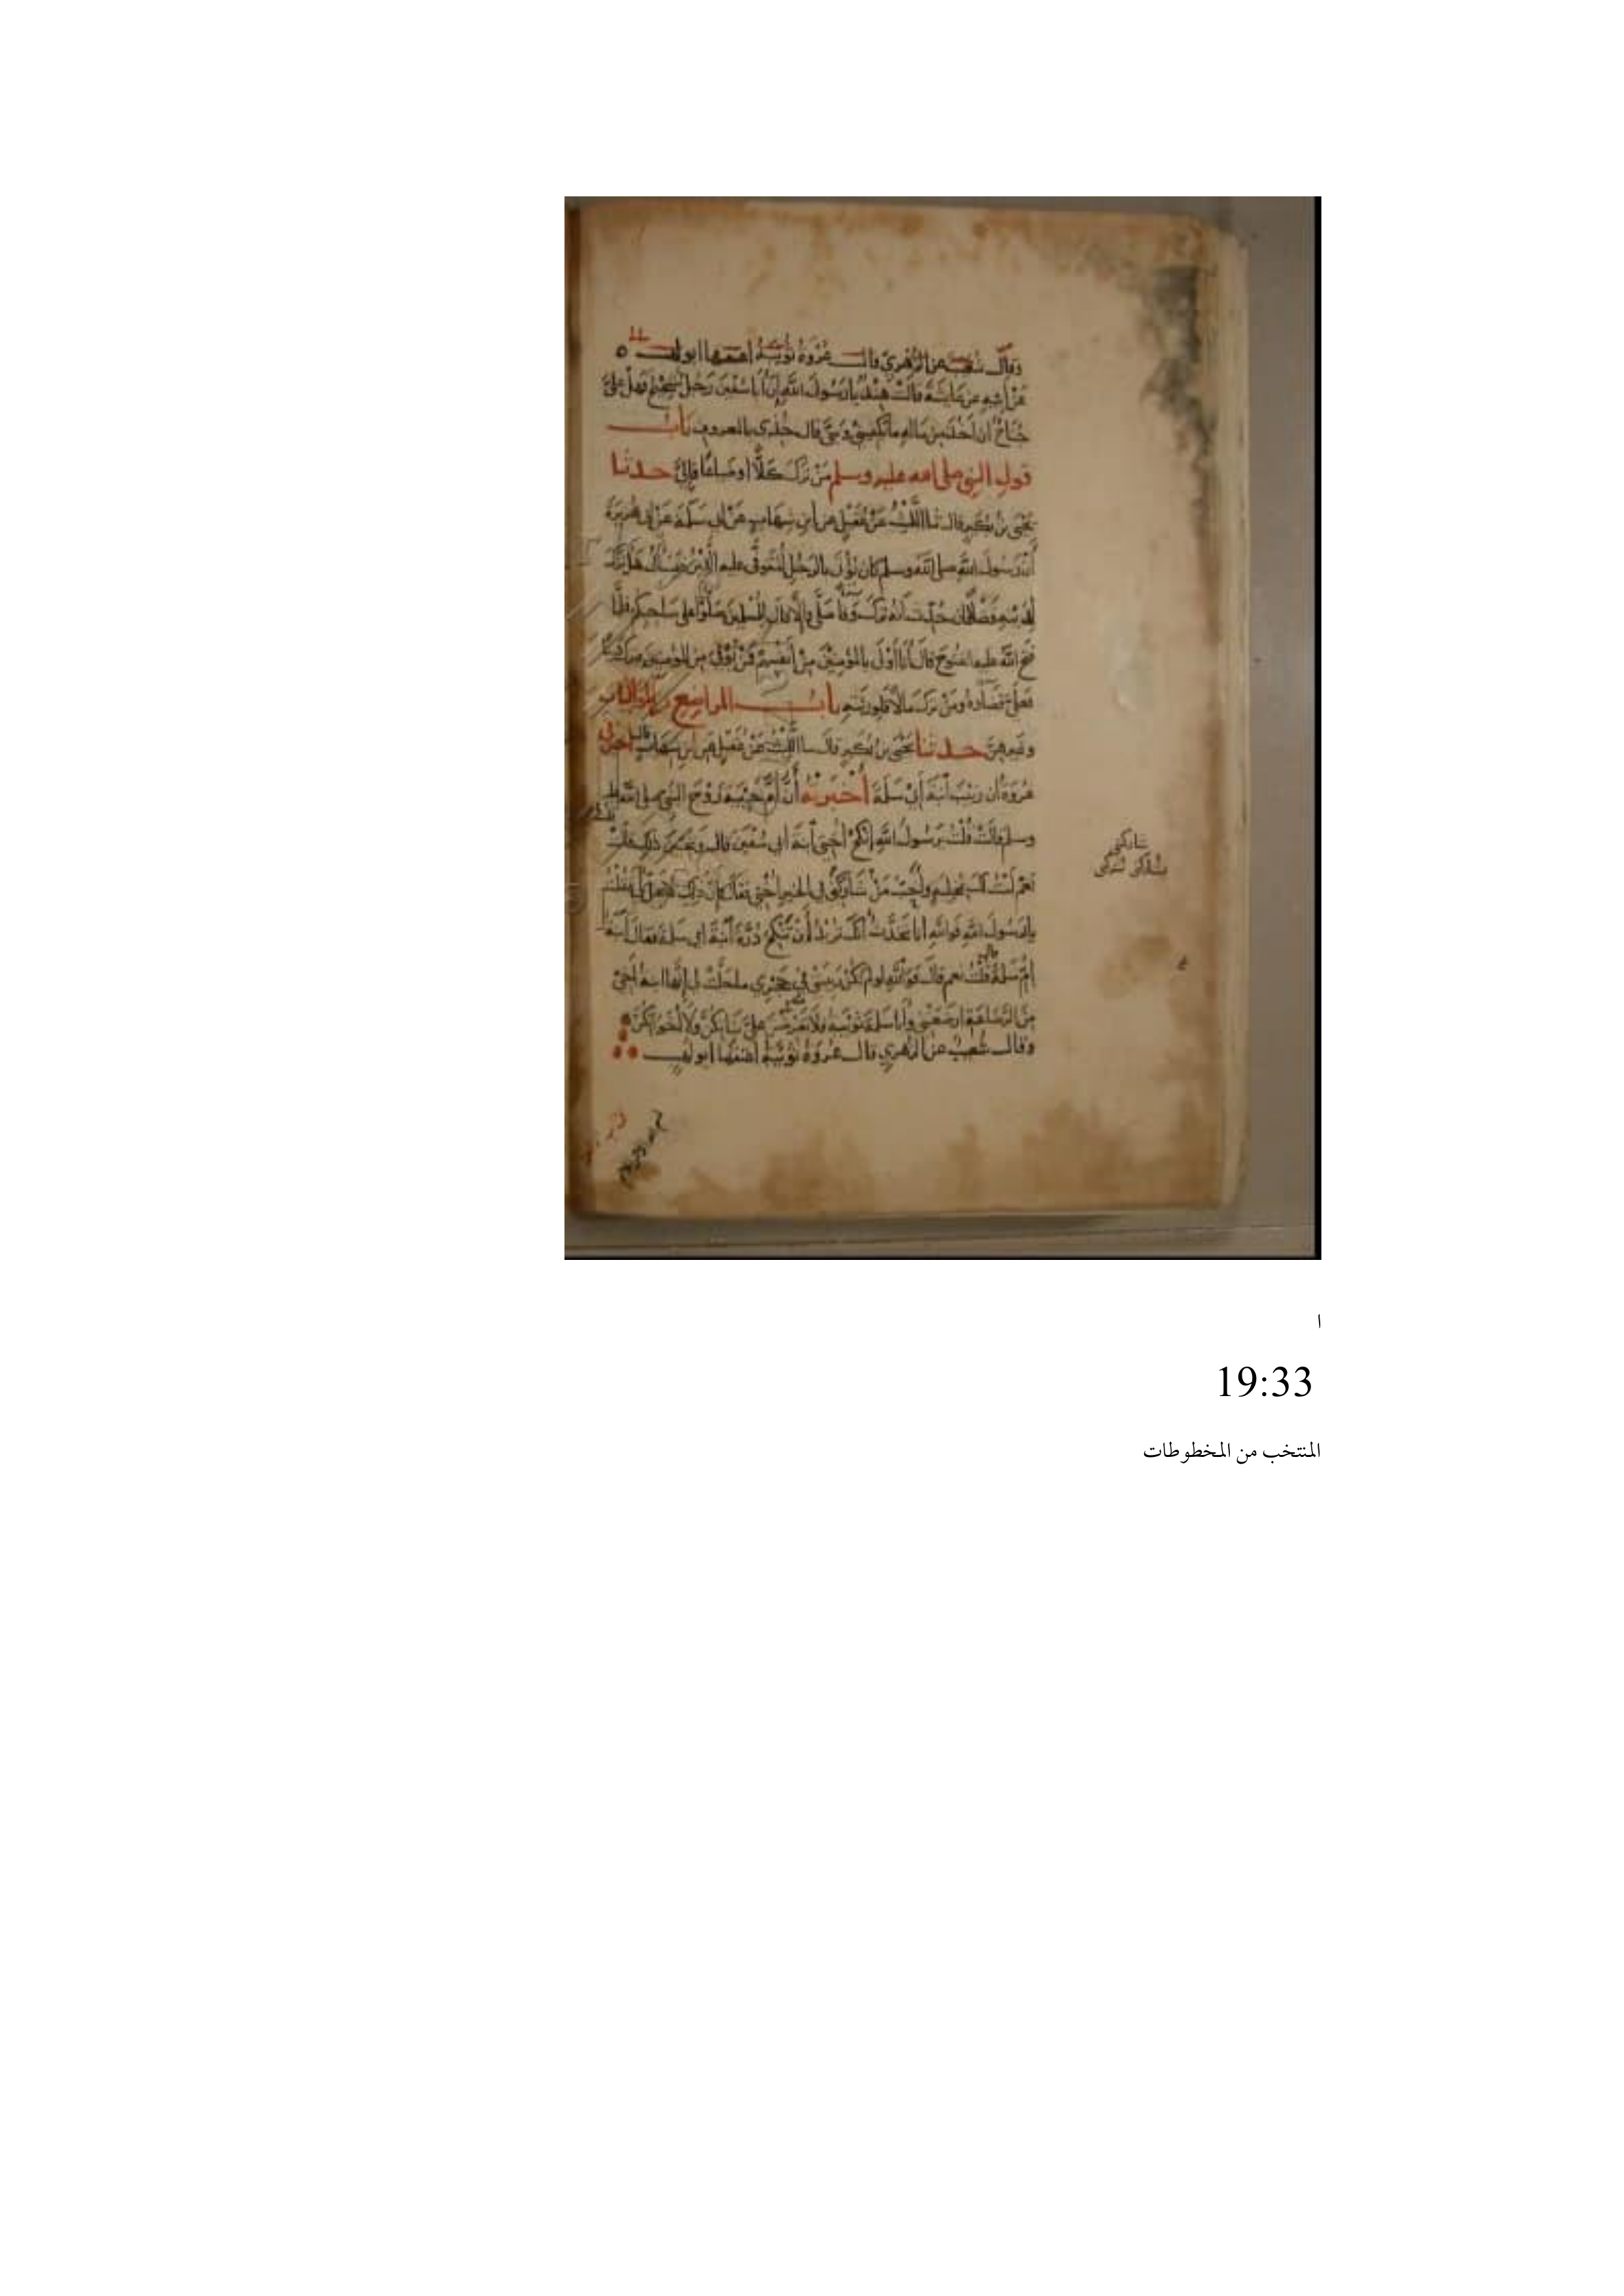 وقال شعيب عن الزهري قال عروة ثويبة اعتقها ابو لهب
عن ابيه عن عايشة قالت هند يا رسول الله ان ابا سفين رجل شحيح فهل علي
جناح ان اخذ من ماله ما يكفيني وبني قال خذي بالمعروف باب
قول النبي صلى الله عليه وسلم من ترك كلا او ضياعا فالي حدثنا
يحيى بن بكير قال ثنا الليث عن عقيل عن ابن شهاب عن ابي سلمة عن ابي هريرة
ان رسول الله صلى الله وسلم كان يؤتى بالرجل المتوفى عليه الدين فيسال هل ترك
لدينه فضلا فان حدث انه ترك وفا صلى والا قال للمسلمين صلوا على صاحبكم فلما
فتح الله عليه الفتوح قال انا اولى بالمؤمنين من انفسهم فمن توفي من المؤمنين فترك دينا
فعلي قضاؤه ومن ترك مالا فلورثته باب المراضع من المواليات
وغيرهن حدثنا يحيى بن بكير قال سا الليث عن عقيل عن ابن شهاب قال اخبرني
عروة ان زينب ابنة ابي سلمة اخبرته ان ام حبيبة زوج النبي صلى الله عليه
وسلم قالت قلت يرسول الله انكح اختي ابنة ابي سفين قال وتحبين ذلك قلت
نعم لست لك بمخلية واحب من شاركني في الخير اختي فقال ان ذلك لا يحل لي فقلت
يا رسول الله فوالله انا نتحدث انك تريد ان تنكح درة ابنة ابي سلمة فقال ابنة
ام سلمة فقلت نعم قال فوالله لو لم تكن ربيبتي في حجري ما حلت لي انها ابنة اخي
من الرضاعة ارضعتني وابا سلمة ثويبة فلا تعرضن علي بناتكن ولا اخواتكن
وقال شعيب عن الزهري قال عروة ثويبة اعتقها ابو لهب
شاركني
ا
19:33
المنتخب من المخطوطات